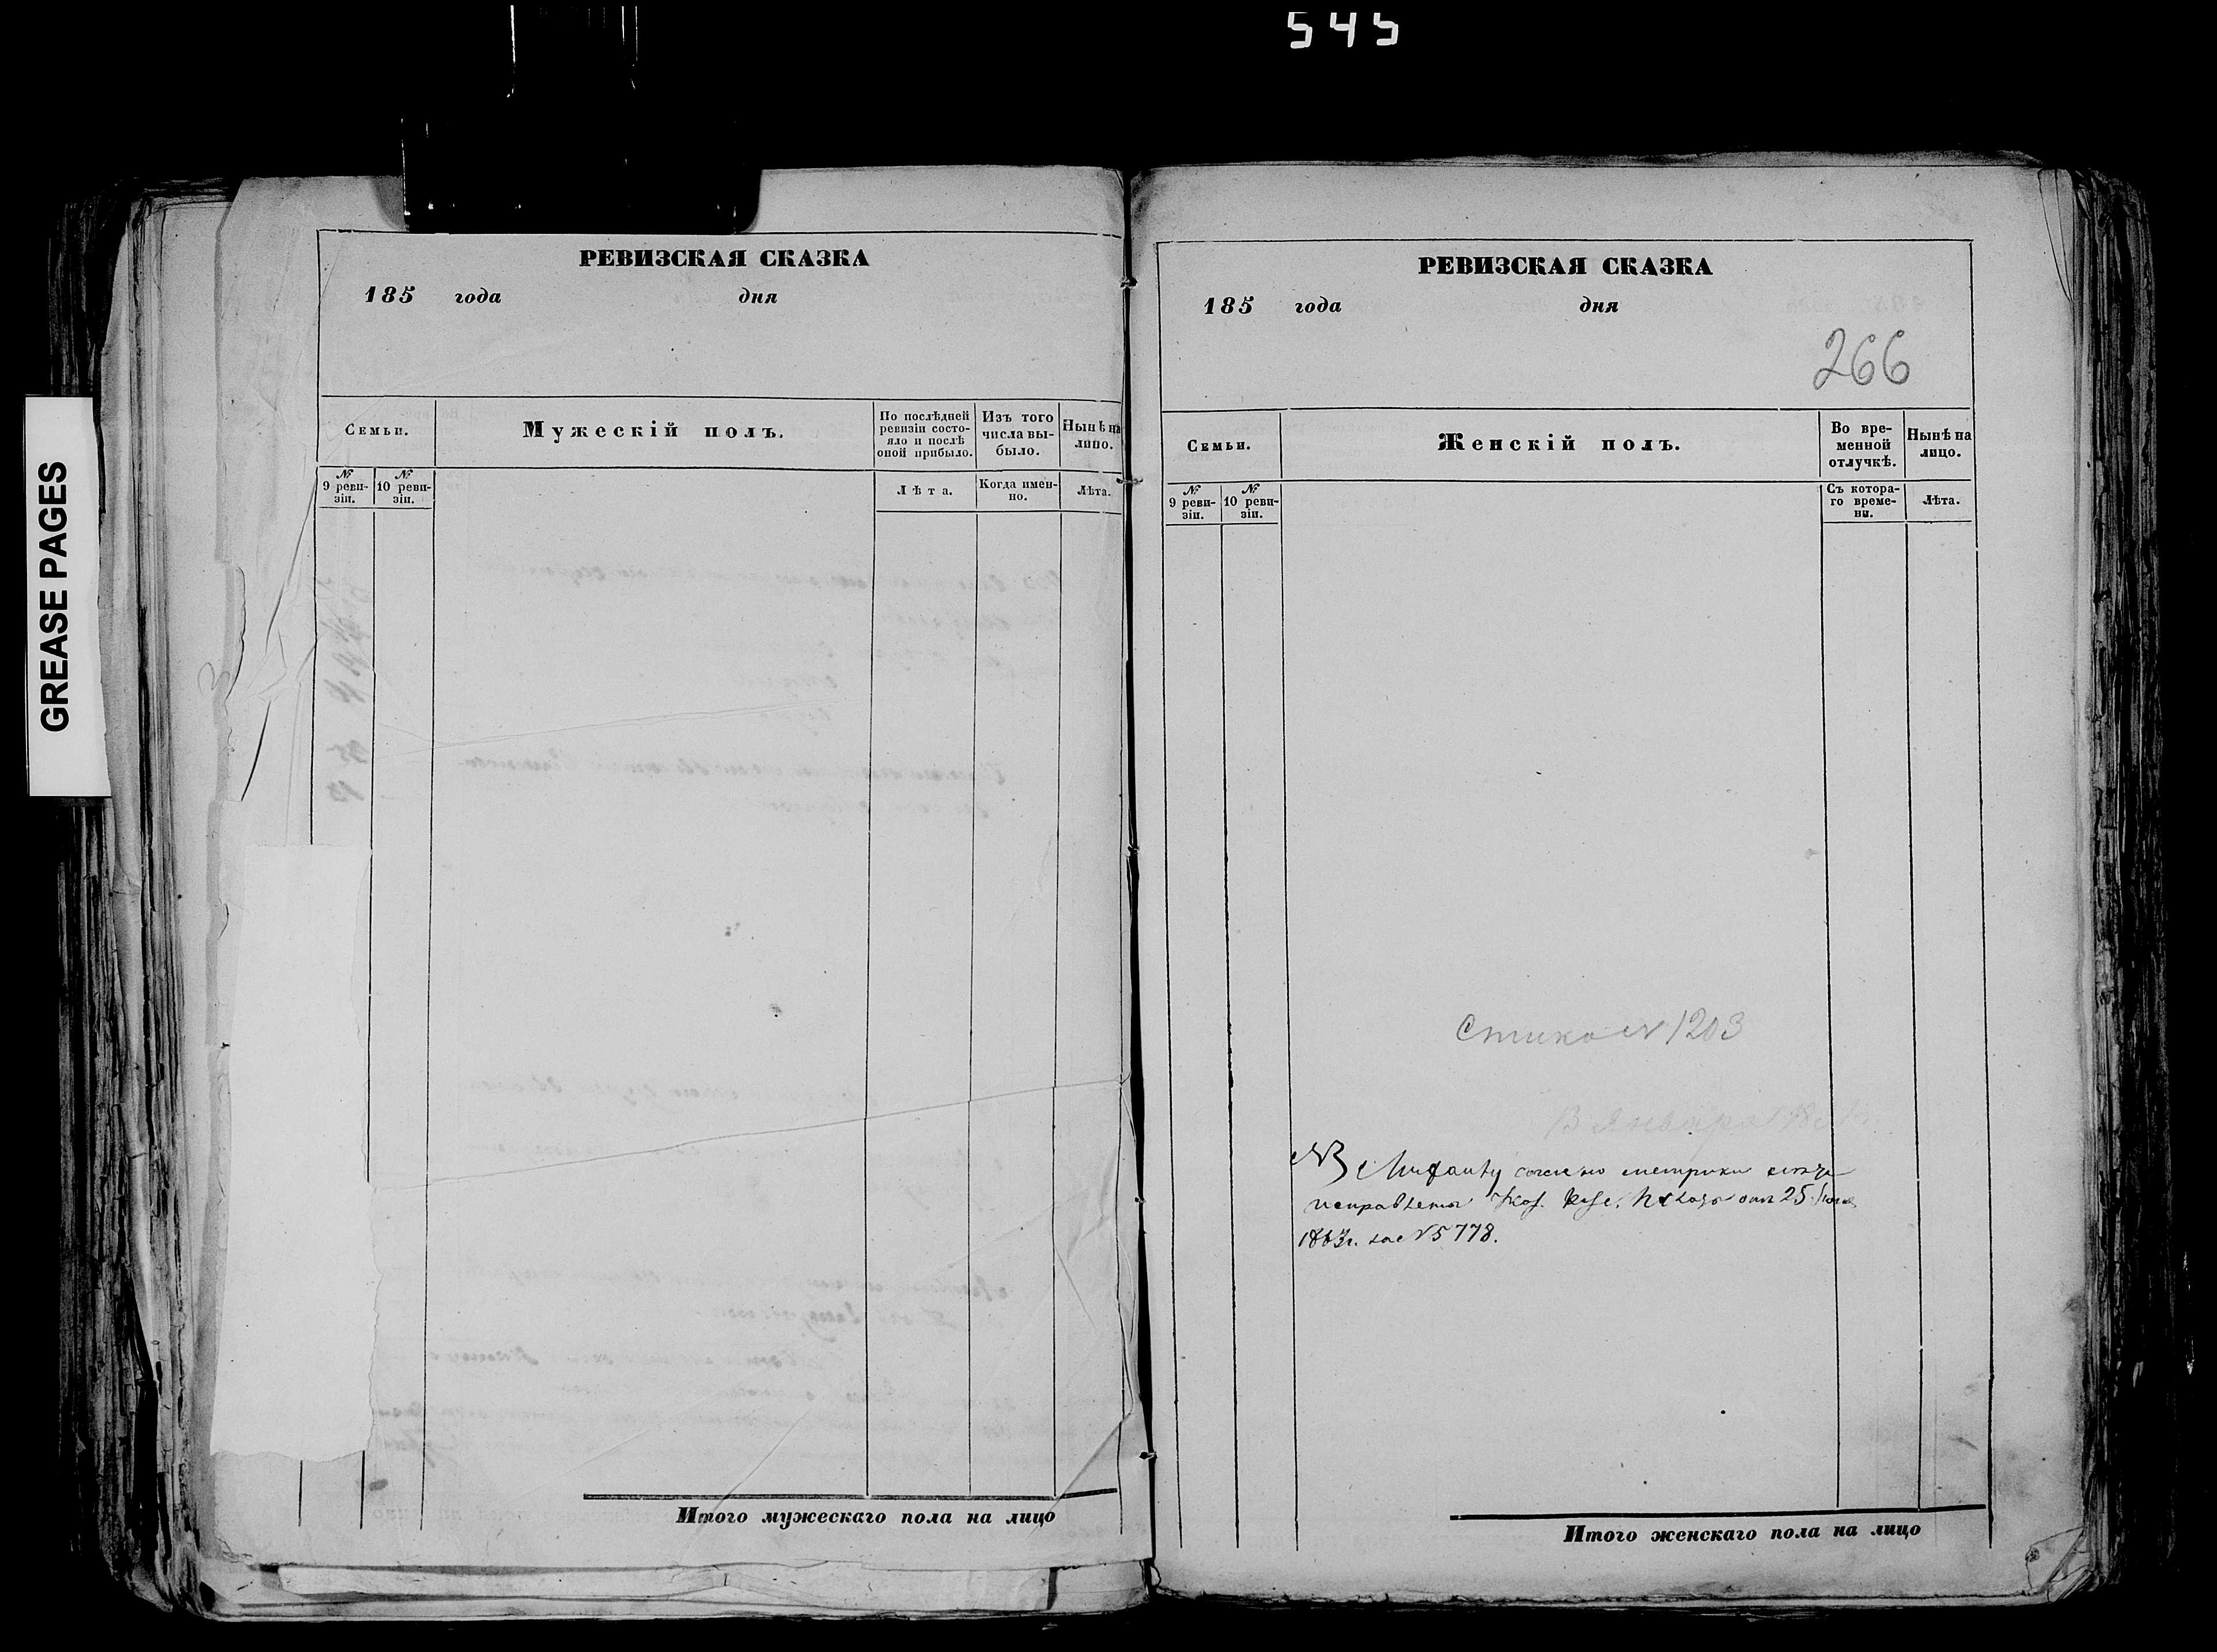 545
GREASE PAGES
РЕВИЗСКАЯ СКАЗКА
185 года дня
Семьи.
Мужескій полъ.
По послѣдней
ревизіи состо-
яло и послѣ
оной прибыло.
Изъ того
числа вы-
было.
Нынѣ на
лицо.
№
9 реви-
зіи.
№
10 реви-
зіи.
Лѣта.
Когда имен-
но.
Лѣта.
Итого мужескаго пола на лицо
РЕВИЗСКАЯ СКАЗКА
185 года дня
266
Семьи.
Женскій полъ.
Во вре-
менной
отлучкѣ.
Нынѣ на
лицо.
№
9 реви-
зіи.
№
10 реви-
зіи.
Съ котора-
го време-
ни.
Лѣта.
№ 1203
В Января
NB
отъ 25
1863г. № 5778.
Итого женскаго пола на лицо